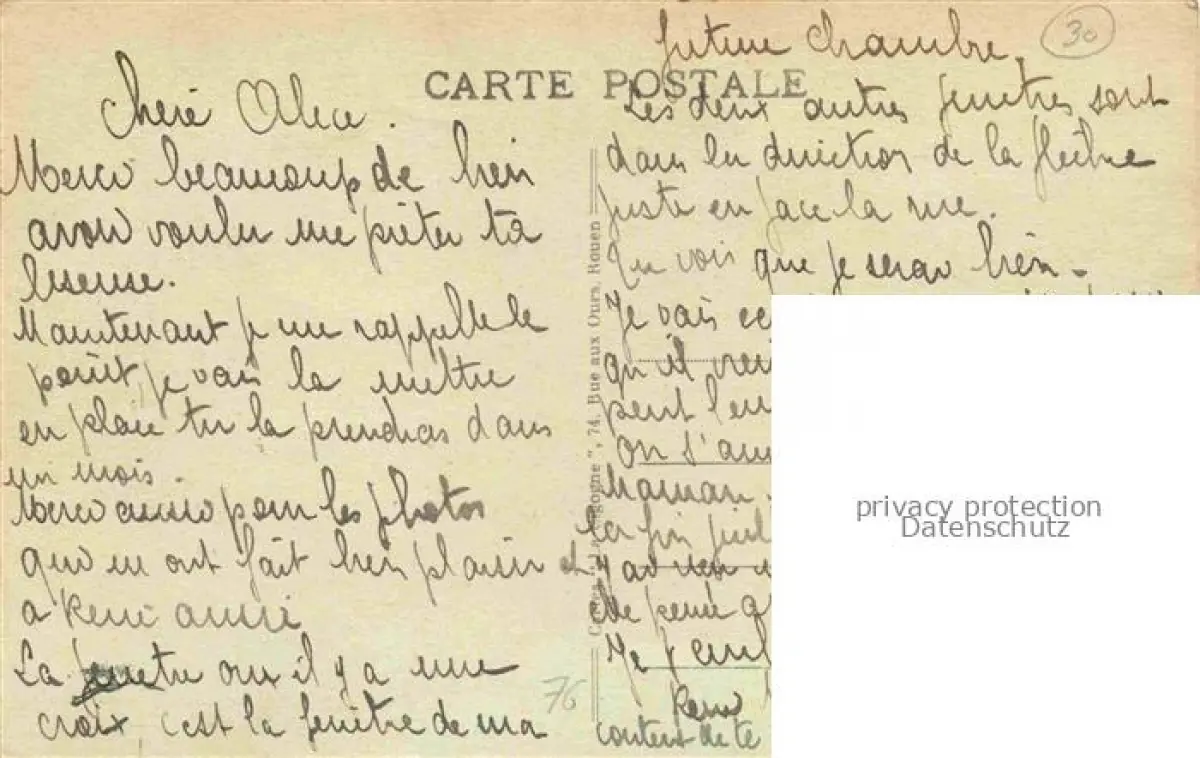 CARTE POSTALE
30
Chère Alice.
Merci beaucoup de bien
avoir voulu me prêter ta
liseuse.
Maintenant je me rappelle le
point, je vais la mettre
en place tu la prendras dans
un mois.
Merci aussi pour les photos
qui m ont fait bien plaisir et
a René aussi
La fenetre ou il y a une
croix c'est la fenêtre de ma
76
Cartes " La Cigogne ", 74, Rue aux Ours, Rouen
future chambre.
Les deux autres fenetres sont
dans la direction de la flèche
juste en face la rue.
Tu vois que je serai bien.
Je vais
qu il
peut
On s'
Maman.
la fin
J'ai rien
de
Je
René
content de te
privacy protection
Datenschutz